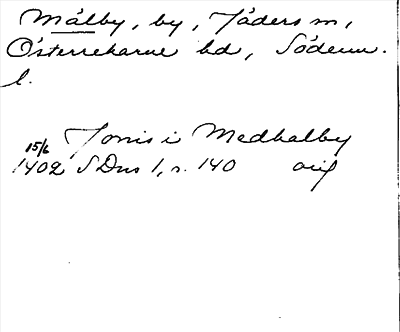 Målby, by, Jäders sn,
Österrekarne hd, Söderm.
l.
15/6 Jonis i Medhalby
1402 SDns 1, s. 140 orig